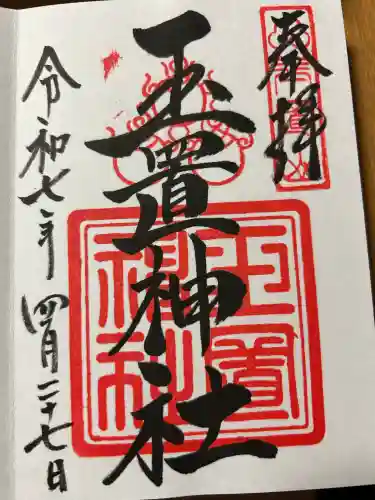 奉拝
玉置神社
令和七年 四月二十七日
玉置
神社